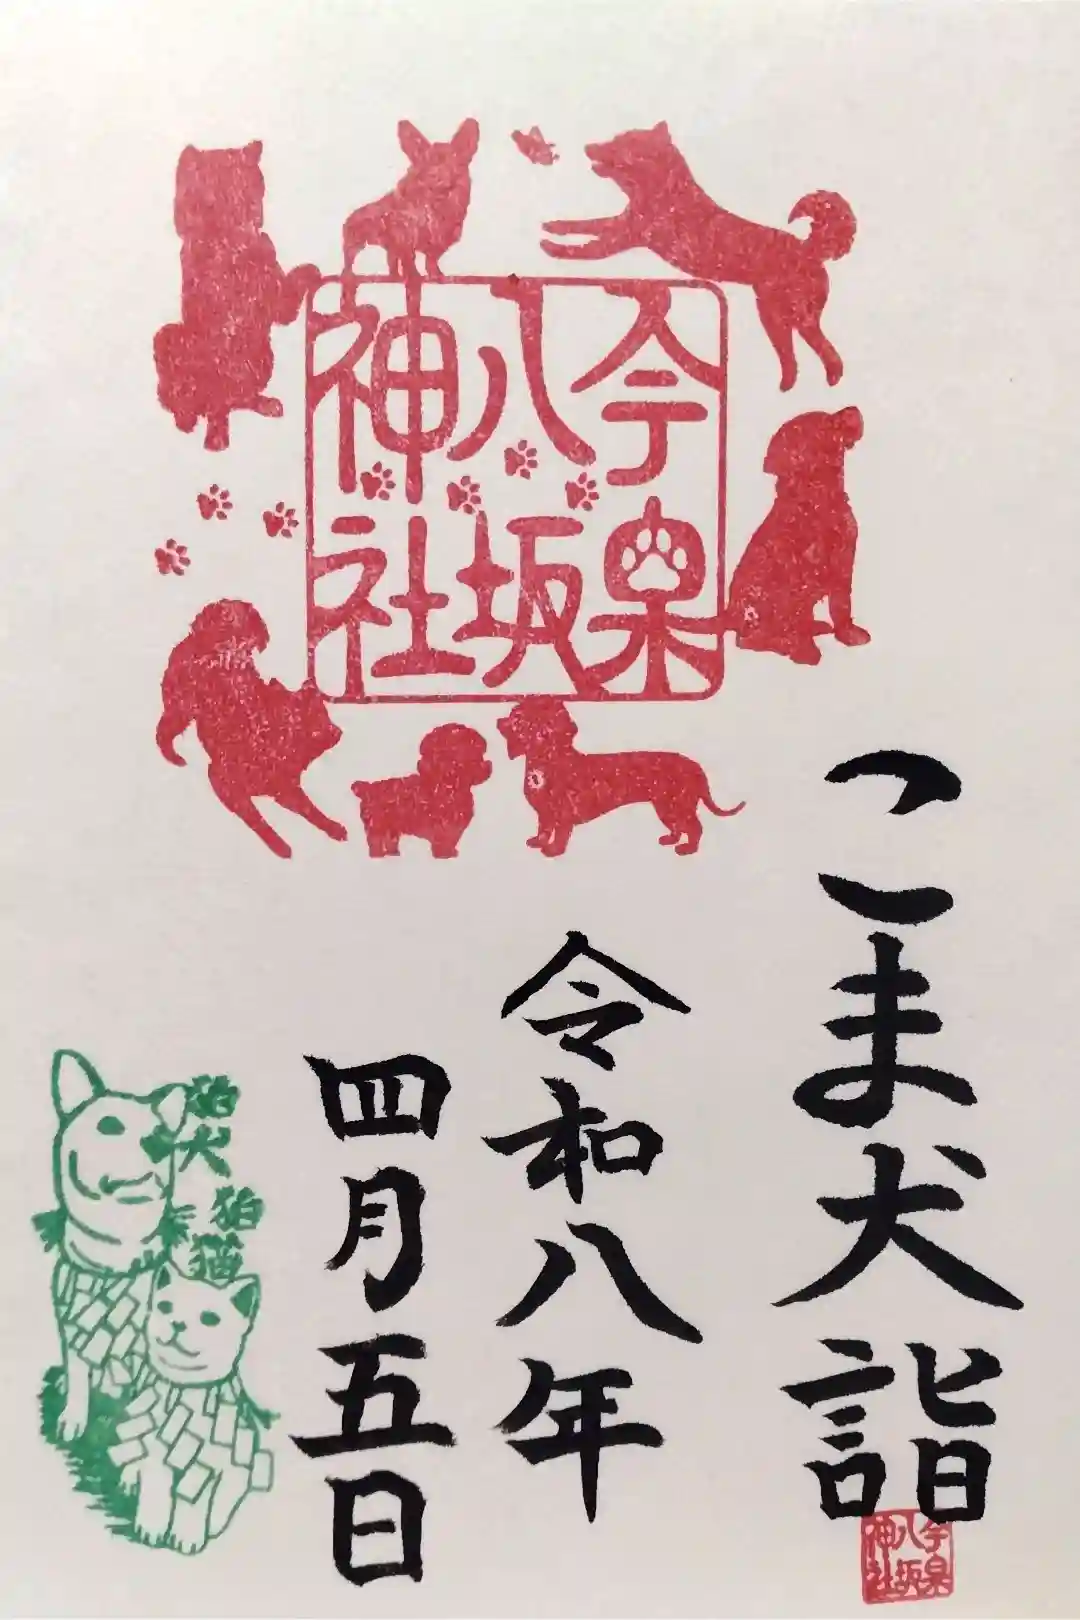 今泉
八坂
神社
こま犬詣
令和八年
四月五日
狛犬
狛猫
今泉
八坂
神社